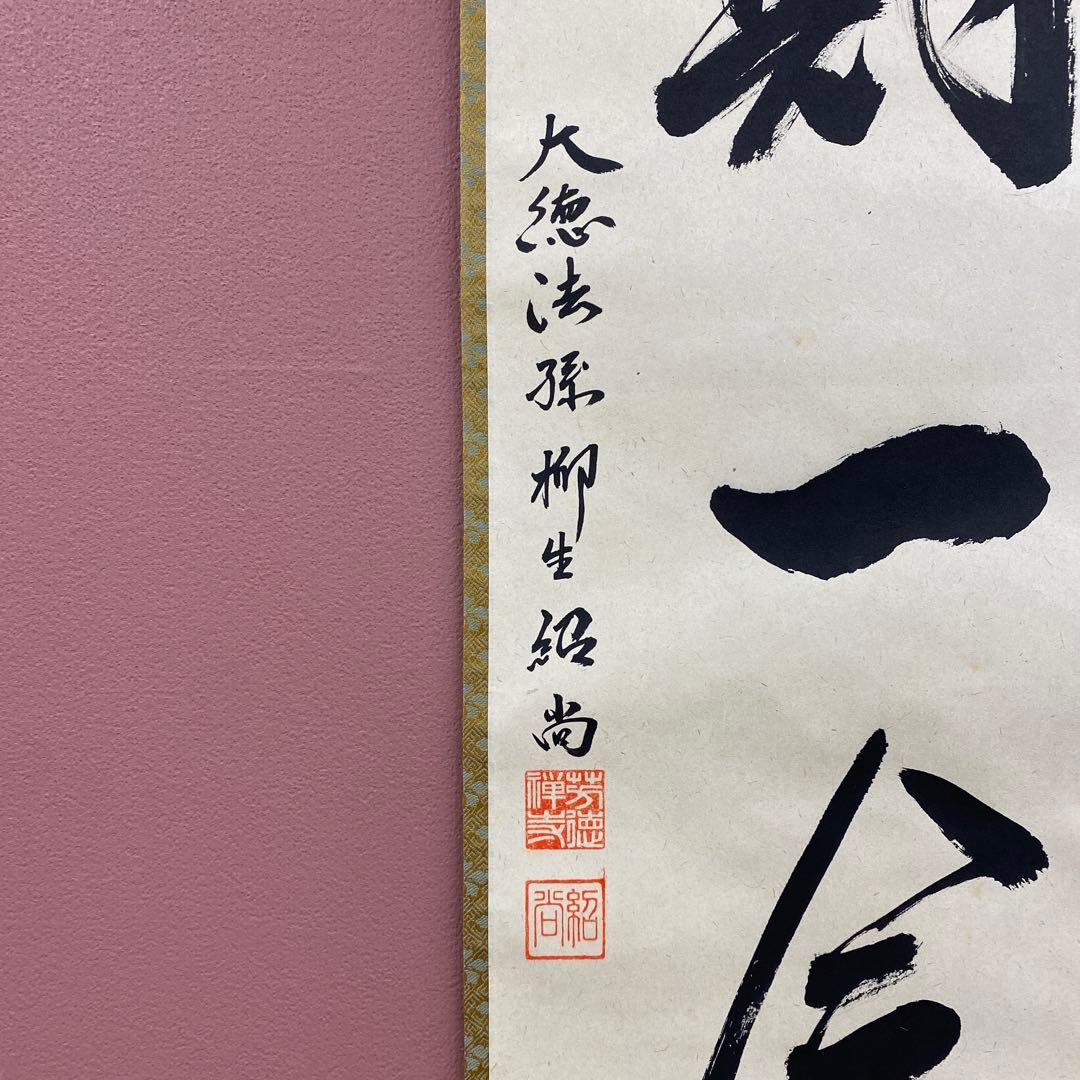 期一会
大徳法孫 柳生紹尚
芳徳禅寺
紹尚